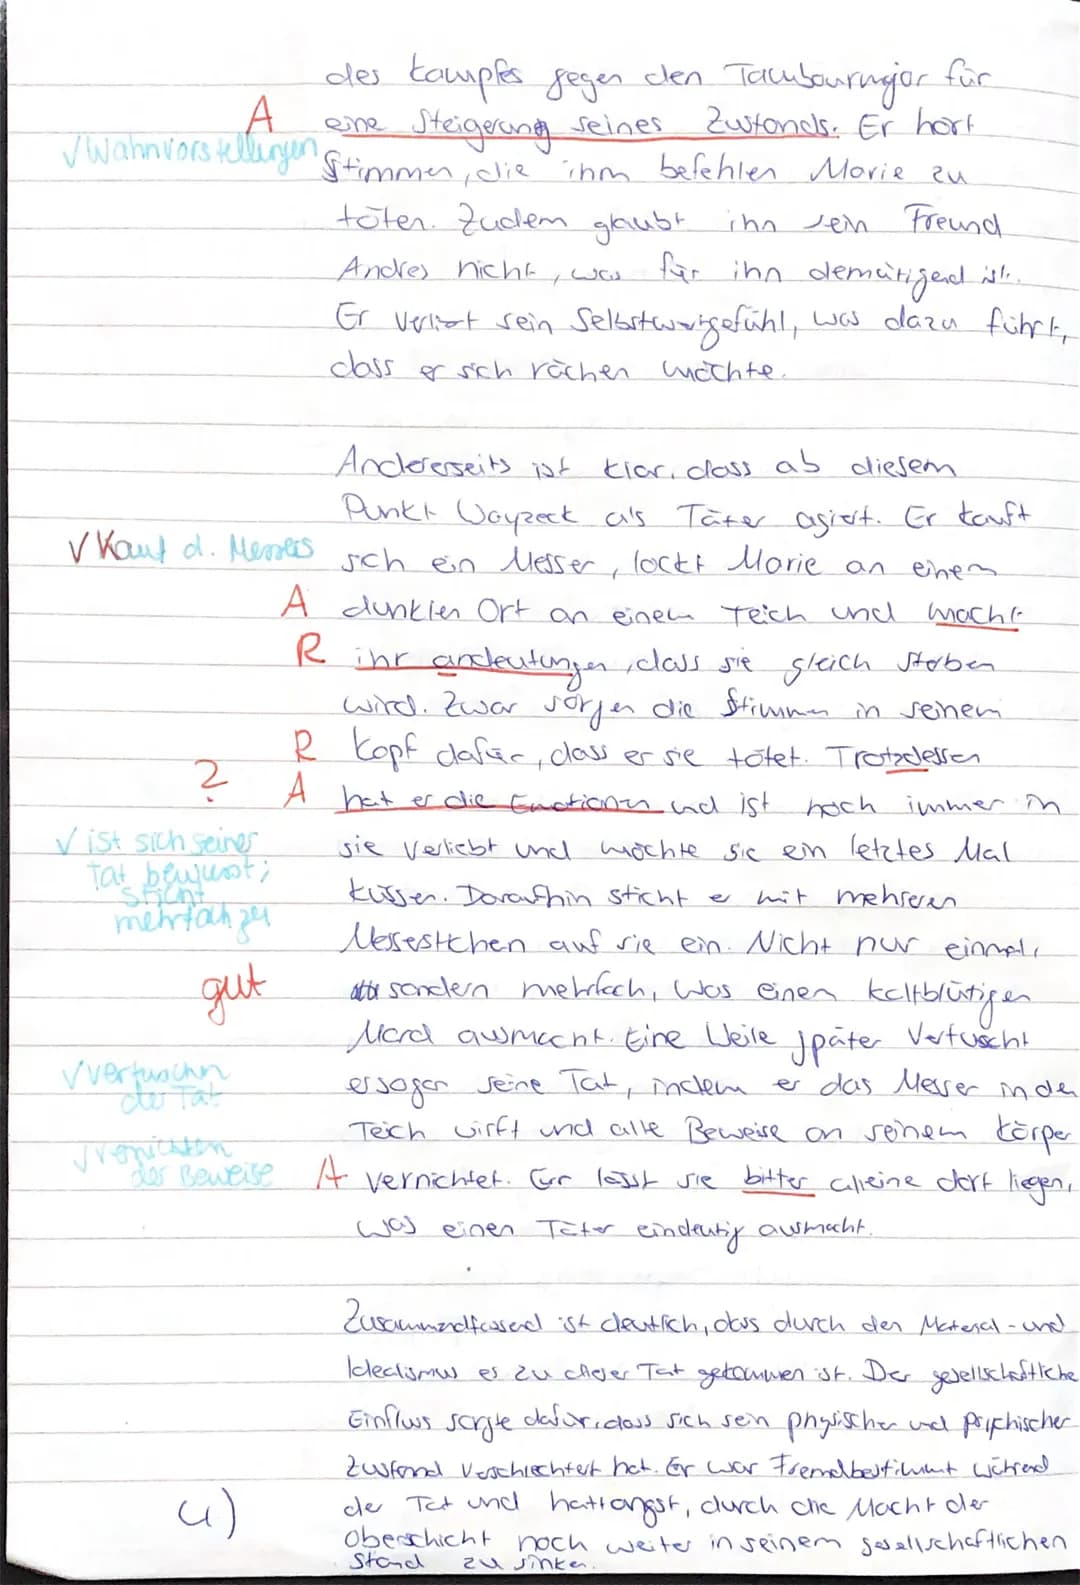 des Kampfes gegen den Tambourmajor für
A eine Steigerung seines Zustands. Er hört
√Wahnvorstellungen Stimmen, die ihm befehlen Marie zu
töten. Zudem glaubt ihn sein Freund
Andres nicht, was für ihn demütigend ist.
Er verliert sein Selbstwertgefühl, was dazu führt,
dass er sich rächen möchte.
Andererseits ist klar, dass ab diesem
Punkt Woyzeck als Täter agiert. Er kauft
√ Kauf d. Messers sich ein Messer, lockt Marie an einen
A dunklen Ort an einem Teich und macht
R ihr andeutungen, dass sie gleich sterben
wird. Zwar sorgen die Stimmen in seinem
R Kopf dafür, dass er sie tötet. Trotzdessen
? A hat er die Emotionen und ist noch immer in
√ ist sich seiner sie verliebt und möchte sie ein letztes Mal
Tat bewusst; sticht küssen. Daraufhin sticht er mit mehreren
mehrfach zu Messestichen auf sie ein. Nicht nur einmal,
gut sondern mehrfach, was einen kaltblütigen
Mord ausmacht. Eine Weile später vertuscht
√vertuschen der Tat er sogar seine Tat, indem er das Messer in den
Teich wirft und alle Beweise an seinem Körper
√vernichten der Beweise A vernichtet. Er lässt sie bitter alleine dort liegen,
was einen Täter eindeutig ausmacht.
Zusammendfassend ist deutlich, das durch den Material- und
Idealismus es zu dieser Tat gekommen ist. Der gesellschaftliche
Einfluss sorgte dafür, dass sich sein physischer und psychischer
Zustand verschlechtert hat. Er war Fremdbestimmt während
4) der Tat und hat angst, durch die Macht der
Oberschicht noch weiter in seinem gesellschaftlichen
Stand zu sinken.